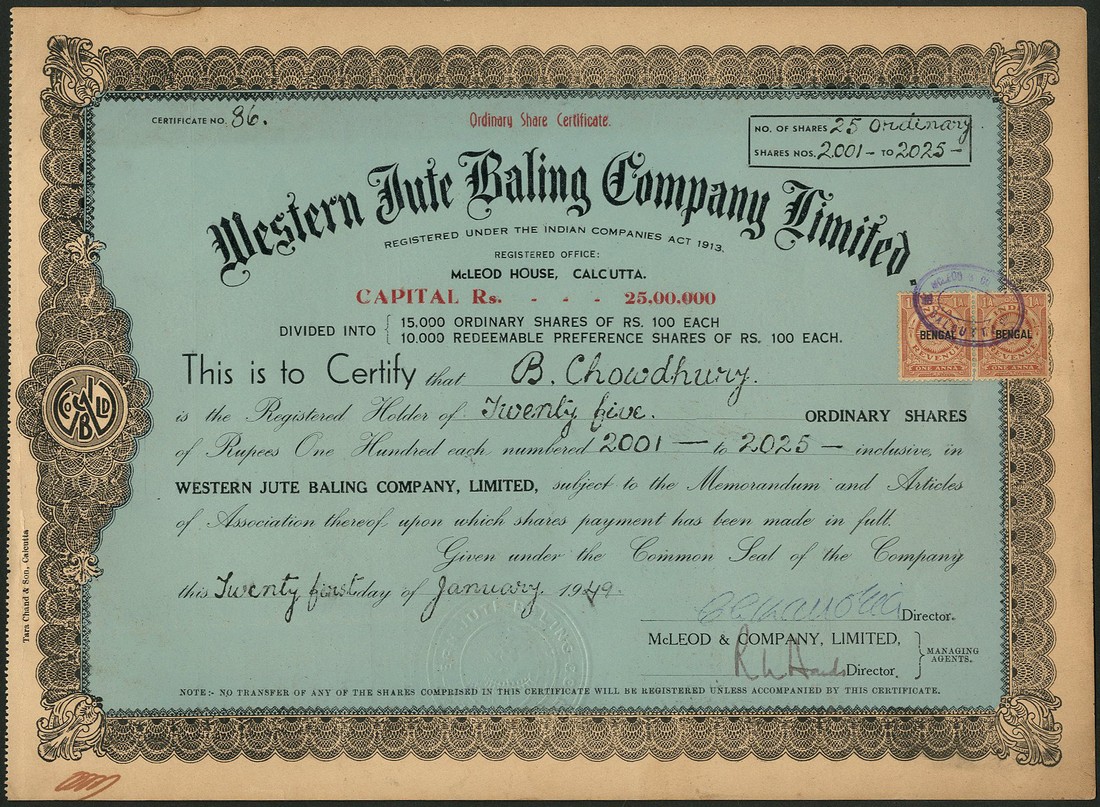 CERTIFICATE NO. 86.
Ordinary Share Certificate.
NO. OF SHARES 25 Ordinary.
SHARES NOS. 2001 — TO 2025 —
Western Jute Baling Company Limited
REGISTERED UNDER THE INDIAN COMPANIES ACT 1913.
REGISTERED OFFICE:
McLEOD HOUSE, CALCUTTA.
CAPITAL Rs. - - - 25,00,000
DIVIDED INTO { 15,000 ORDINARY SHARES OF RS. 100 EACH
10,000 REDEEMABLE PREFERENCE SHARES OF RS. 100 EACH.
1A 1A 1A
INDIA
BENGAL BENGAL
REVENUE REVENUE
ONE ANNA ONE ANNA
This is to Certify that B. Chowdhury.
is the Registered Holder of Twenty five. ORDINARY SHARES
of Rupees One Hundred each numbered 2001 — to 2025 — inclusive, in
WESTERN JUTE BALING COMPANY, LIMITED, subject to the Memorandum and Articles
of Association thereof, upon which shares payment has been made in full.
Given under the Common Seal of the Company
this Twenty first day of January. 1949.
Director.
McLEOD & COMPANY, LIMITED,
Director.
} MANAGING
AGENTS.
NOTE:- NO TRANSFER OF ANY OF THE SHARES COMPRISED IN THIS CERTIFICATE WILL BE REGISTERED UNLESS ACCOMPANIED BY THIS CERTIFICATE.
Tara Chand & Son, Calcutta